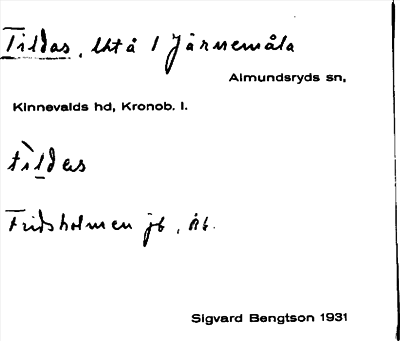 Tildas, lht å 1 Järnemåla
Almundsryds sn,
Kinnevalds hd, Kronob. l.
tìldas
Fridsholmen jb, Åb.
Sigvard Bengtson 1931